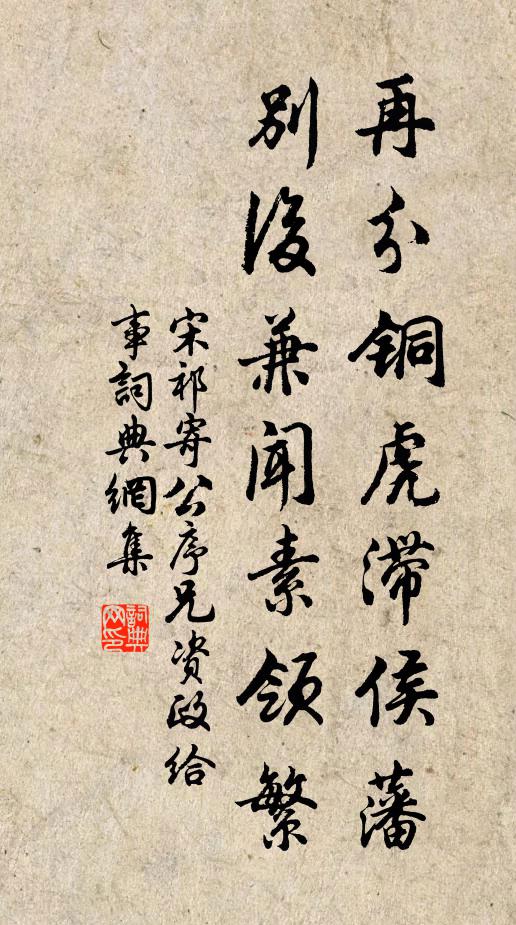 再分铜虎滞侯藩
别后兼闻素领繁
宋祁寄公序兄资政给
事词典网集
词典网印